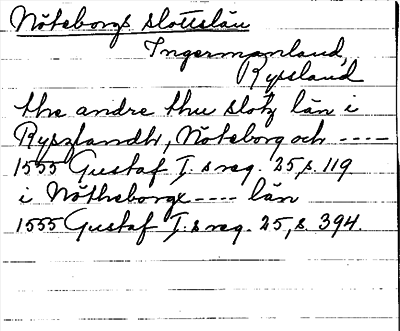 Nöteborgs slottslän
Ingermanland,
Ryssland
the andre thu slotz län i
Ryszlandh, Nöteborg och ----
1555 Gustaf I.s reg. 25, s. 119
i Nötheborgx ---- län
1555 Gustaf I.s reg. 25, s. 394.